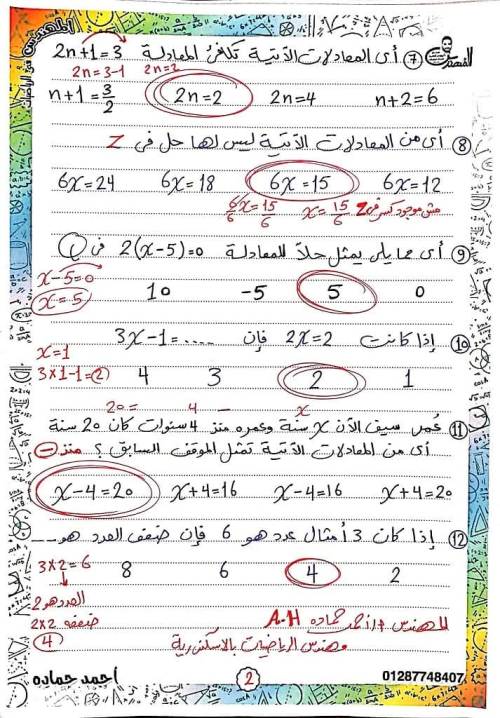 المهندس فى الرياضيات
⑦ أى المعادلات الآتية تكافئ المعادلة 2n+1=3
2n=3-1 2n=2
n+1=3/2 2n=2 2n=4 n+2=6
⑧ أى من المعادلات الآتية ليس لها حل فى Z
6x=24 6x=18 6x=15 6x=12
6x/6=15/6 x=15/6 مش موجود كسر فى Z
⑨ أى مما يلى يمثل حلاً للمعادلة 2(x-5)=0 فى Q
x-5=0
x=5
10 -5 5 0
⑩ إذا كانت 2x=2 فإن 3x-1=....
x=1
3x1-1=②
4 3 2 1
20= 4 - x
⑪ عُمر سيف الآن x سنة وعمره منذ 4 سنوات كان 20 سنة
أى من المعادلات الآتية تمثل الموقف السابق ؟ منذ -
x-4=20 x+4=16 x-4=16 x+4=20
⑫ إذا كان 3 أمثال عدد هو 6 فإن ضعف العدد هو ....
3x2=6
8 6 4 2
العدد هو 2
ضعفه
2x2
④
المهندس / أحمد حماده A.H
مهندس الرياضيات بالاسكندرية
أحمد حماده
2
01287748407